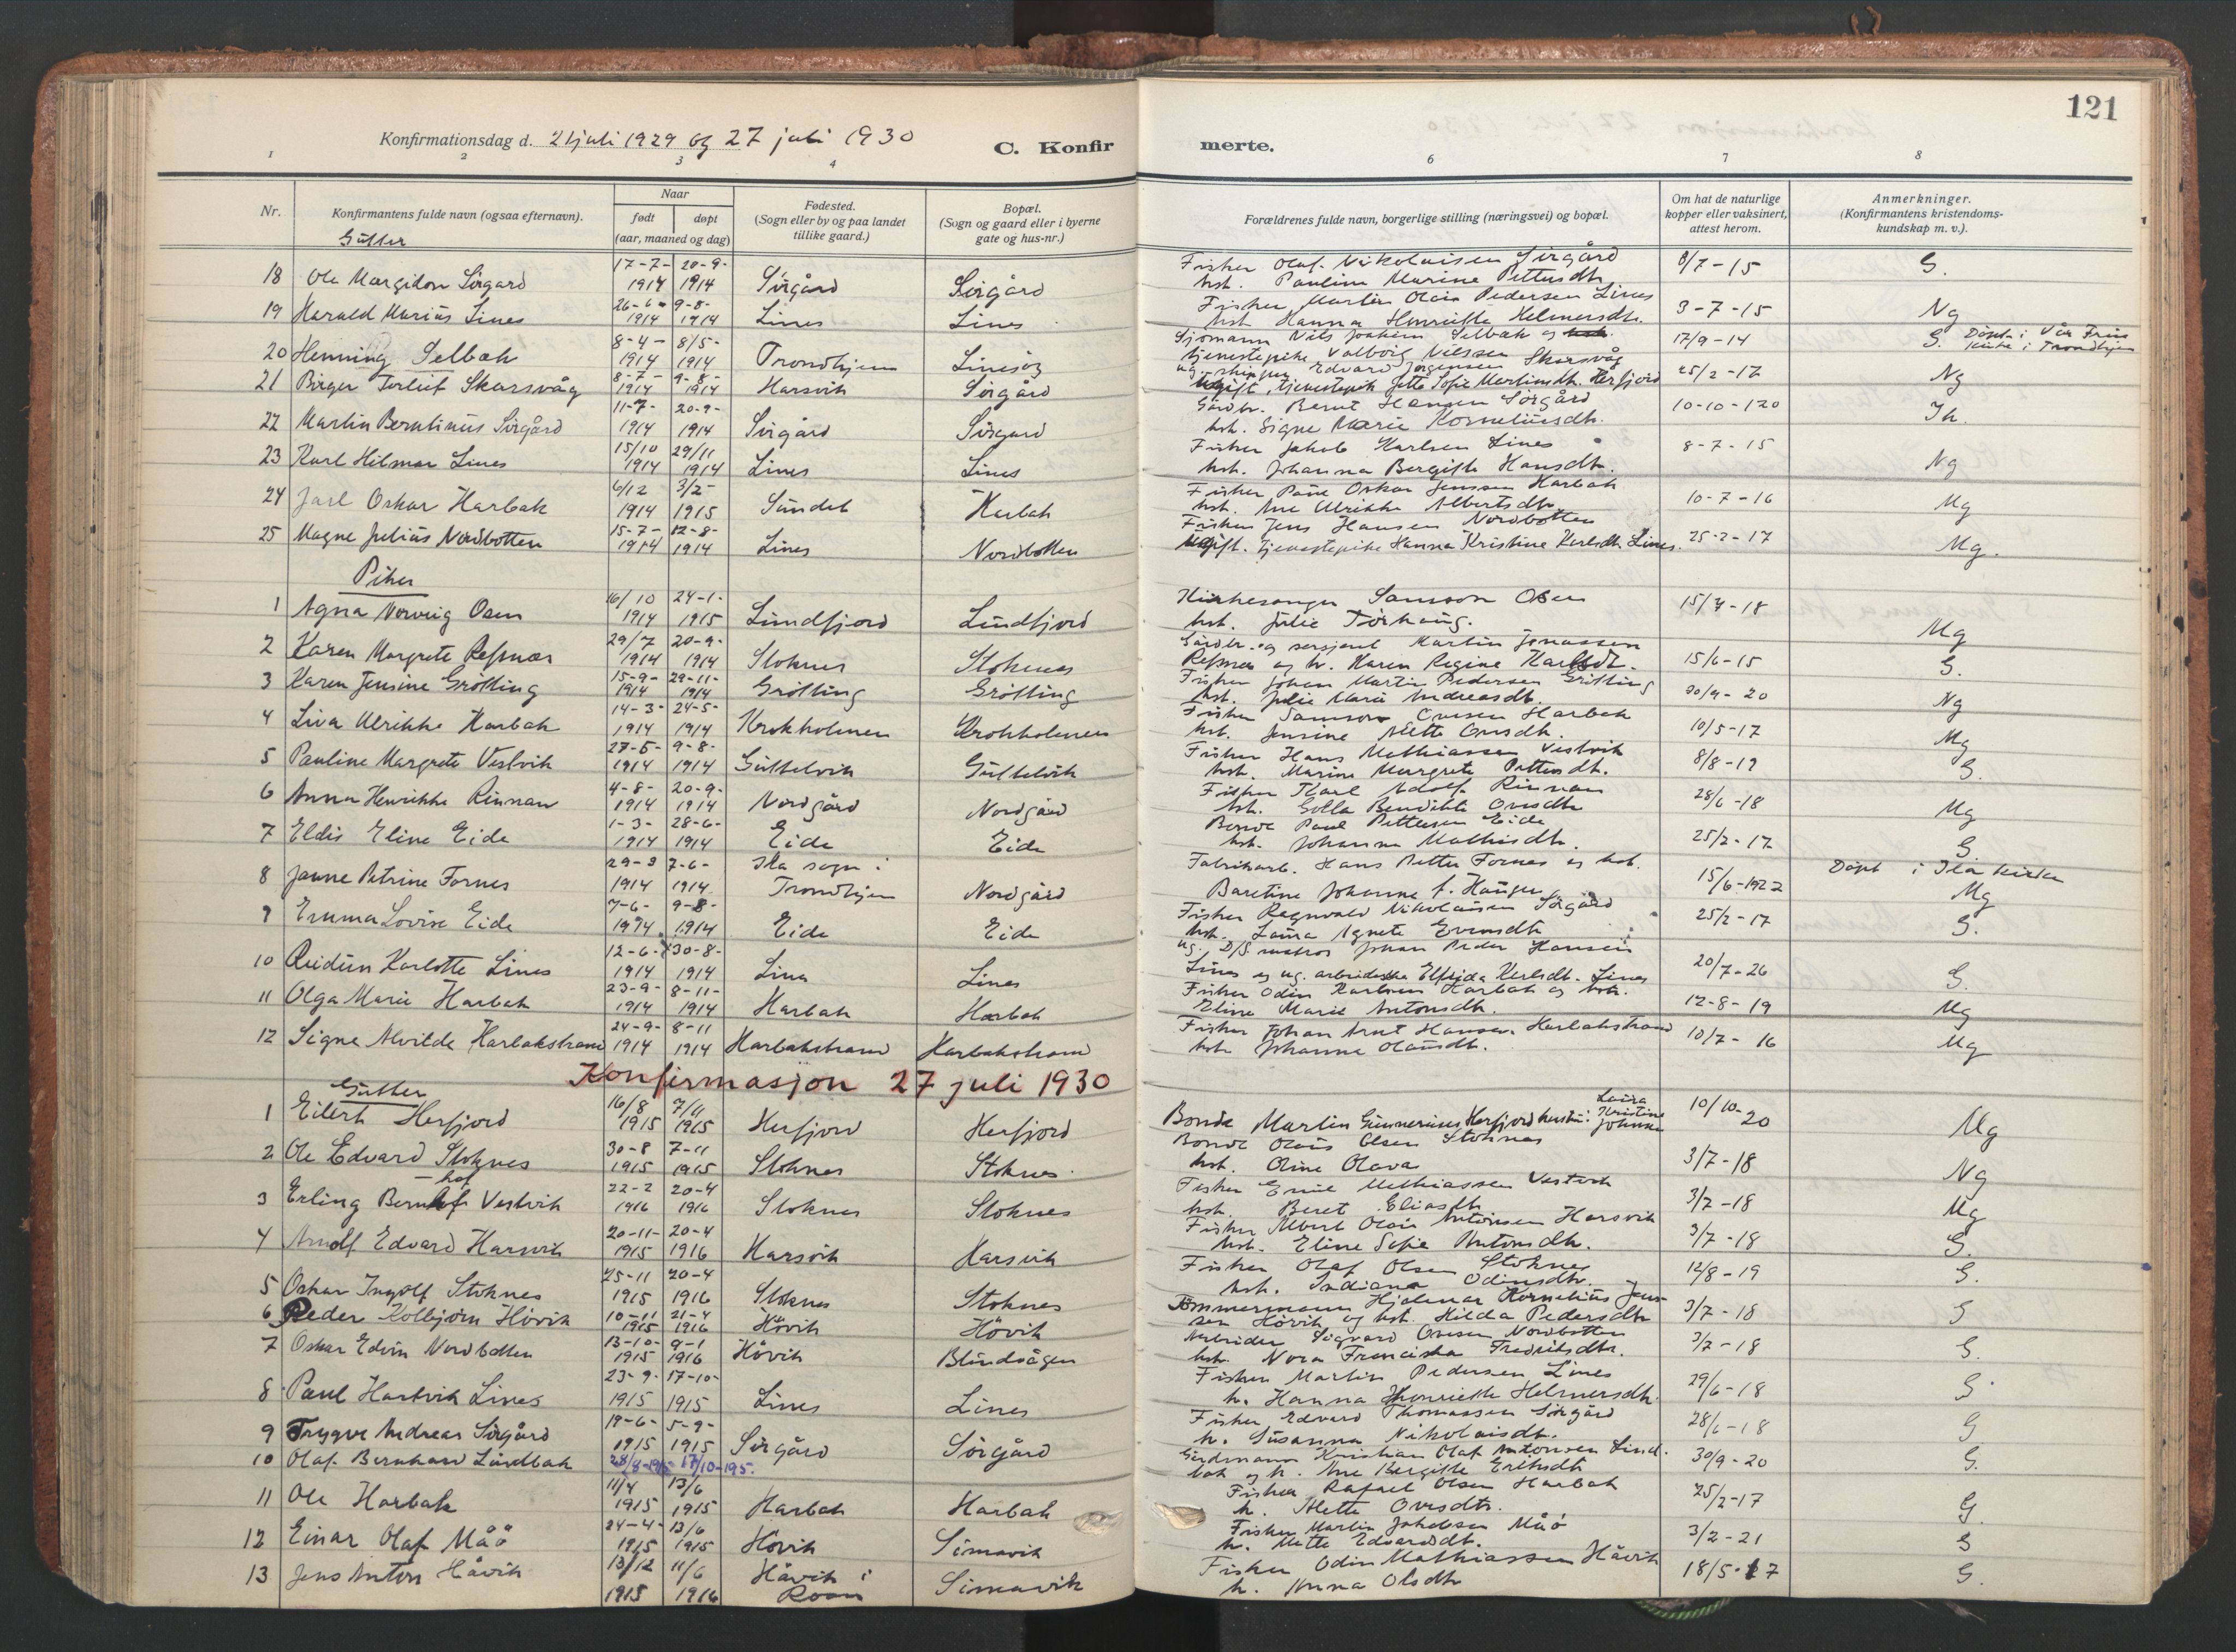 121
Konfirmationsdag d. 21 juli 1929 og 27 juli 1930
C. Konfirmerte.
1 2 3 4 6 7 8
Nr.
Konfirmantens fulde navn (ogsaa efternavn).
Naar
født
døpt
(aar, maaned og dag)
Fødested.
(Sogn eller by og paa landet
tillike gaard.)
Bopæl.
(Sogn og gaard eller i byerne
gate og hus-nr.)
Forældrenes fulde navn, borgerlige stilling (næringsvei) og bopæl.
Om hat de naturlige
kopper eller vaksinert,
attest herom.
Anmerkninger.
(Konfirmantens kristendoms-
kundskap m. v.).
Gutter
18 Ole Margidon Sörgård 17-7-1914 20-9-1914 Sörgård Sörgård Fisker Olaf Nikolaisen Sörgård
hst. Pauline Marine Pettersdtr. 8/7-15 G.
19 Harald Marius Lines 26-6-1914 9-8-1914 Lines Lines Fisker Martin Olai Pedersen Lines
hst Hanna Henrikke Helmersdtr. 3-7-15 Ng
20 Henning Selbak 8-4-1914 8/5-1914 Trondhjem Linesöy Sjömann Nils Joakim Selbak og
tjenestepike Valborg Nilssen 17/9-14 G. Döpt i Vår Frue
Kirke i Trondhjem
21 Birger Torleif Skarsvåg 8-7-1914 9-8-1914 Harsvik Sörgård ug. skipper Edvard Jörgensen Skarsvåg
Ugift, tjenestepik Jette Sofie Martinsdtr. Herfjord 25/2-17 Ng
22 Martin Berntinus Sörgård 11-7-1914 20-9-1914 Sörgård Sörgård Gårdbr. Bernt Hansen Sörgård
hst. Signe Marie Korneliusdtr. 10-10-120
23 Karl Hilmar Lines 15/10 1914 29/11 1914 Lines Lines Fisker Jakob Karlsen Lines
hst. Johanna Bergitte Hansdtr. 8-7-15 Ng
24 Jarl Oskar Harbak 6/12 1914 3/2-1915 Sundet Harbak Fisker Paul Oskar Jenssen Harbak
hst. Ane Ulrikke Albertsdtr. 10-7-16 Mg
25 Magne Julius Nordbotten 15-7-1914 12-8-1914 Lines Nordbotten Fisker Jens Hansen Nordbotten
Ugift. tjenestepike Hanna Kristine Karlsdtr. Lines. 25-2-17 Mg.
Piker
1 Agna Norveig Osen 16/10 1914 24-1-1915 Sundfjord Sundfjord Kirkesanger Samson Osen
hst. Julie Törhaug. 15/7-18 Mg
2 Karen Margrete Refsnes 29/7 1914 20-9-1914 Stoknes Stoknes Gårdbr. og sersjant Martin Jonassen
Refsnes og h. Karen Regine Karlsdtr. 15/6-15 G.
3 Karen Jensine Grötting 15-9-1914 29-11-1914 Grötting Grötting Fisker Johan Martin Pedersen Grötting
hst. Julie Marie Andreasdtr. 30/9-20 Ng
4 Liva Ulrikke Harbak 14-3-1914 24-5-1914 Krokholmen Krokholmen Fisker Samson Ovesen Harbak
hst. Jensine Mette Ovesdtr. 10/5-17 Mg
5 Pauline Margrete Vestvik 27-5-1914 9-8-1914 Guttelvik Guttelvik Fisker Hans Mathiassen Vestvik
hst. Marine Margrete Pettersdtr. 8/8-19 G.
6 Anna Henrikke Rinnan 4-8-1914 20-9-1914 Nordgård Nordgård Fisker Karl Adolf Rinnan
hst. Golla Bendikte Ovesdtr 28/6-18 Mg
7 Eldis Eline Eide 1-3-1914 28-6-1914 Eide Eide Bonde Paul Pettersen Eide
hst. Johanna Mathisdtr. 25/2-17 G.
8 Janne Petrine Fornes 29-3 1914 7-6-1914. Ila sogn i Trondhjem Nordgård Fabrikarb. Hans Petter Fornes og hst.
Baretine Johanne f. Hauger 15/6-1922 Döpt i Ila kirke
Mg
9 Emma Lovise Eide 7-6-1914 9-8-1914 Eide Eide Fisker Regnvald Nikolaisen Sörgård
hst. Laura Agnete Evensdtr 25/2-17 G.
10 Reidun Karlotte Lines 12-6-1914 30-8-1914 Lines Lines ug. D/S matros Johan Peder Hansen
Lines og ug. arbeiderske Elfrida Karlsdtr. Lines 20/7-26 G.
11 Olga Marie Harbak 23-9-1914 8-11-1914 Harbak Harbak Fisker Odin Karlsen Harbak og hst.
Eline Marie Antonsdtr. 12-8-19 Mg
12 Signe Alvilde Harbakstrand 24-9-1914 8-11 1914 Harbakstrand Harbakstrand Fisker Johan Arnt Hansen Harbakstrand
hst. Johanna Olausdtr. 10/7-16 Mg
Konfirmasjon 27 juli 1930
Gutter
1 Eilert Herfjord 16/8 1915 7/11 1915 Herfjord Herfjord Bonde Martin Gunnerius Herfjord hustru: Laura Kristine Johanna 10/10-20 Mg
2 Ole Edvard Stoknes 30-8 1915 7-11 1915 Stoknes Stoknes. Bonde Olaus Olsen Stoknes
hst. Oline Olava 3/7-18 Ng
3 Erling Bernhof Vestvik 22-2 1916 20-4 1916 Stoknes Stoknes Fisker Emil Mathiassen Vestvik
hst. Beret Eliasdtr 3/7-18 Mg
4 Arnolf Edvard Harsvik 20-11-1915 20-4 1916 Harsvik Harsvik Fisker Albert Olai Antonsen Harsvik
hst. Eline Sofie Antonsdtr. 3/7-18 G.
5 Oskar Ingolf Stoknes 25-11 1915 20-4 1916 Stoknes Stoknes Fisker Olaf Olsen Stoknes
hst. Indiana Odinsdtr. 12/8-19 G.
6 Peder Kolbjörn Hövik 10-11 1915 21-4 1916 Hövik Hövik Tömmermann Hjalmar Kornelius Jens-
sen Hövik og hst. Hilda Pedersdtr 3/7-18 G
7 Oskar Edvin Nordbotten 13-10-1915 9-1 1916 Hövik Blindvågen Arbeider Sigvard Ovesen Nordbotten
hst. Nora Franciska Fredriksdtr. 3/7-18 G.
8 Paul Hartvik Lines 23-9-1915 17-10-1915 Lines Lines Fisker Martin Pedersen Lines
h. Hanna Henrikke Helmersdtr. 29/6-18 G.
9 Trygve Andreas Sörgård 19-6-1915 5-9-1915 Sörgård Sörgård Fisker Edvard Thomassen Sörgård
h. Susanna Nikolaisdtr. 28/6-18 G
10 Olaf Bernhard Lindbak 28/8-1915 17/10-195. Gårdmann Kristian Olaf Antonsen Lind-
bak og h. Ane Bergitte Eriksdtr 30/9-20 G.
11 Ole Harbak 11/4 1915 13/6 1915 Harbak Harbak Fisker Rafael Olsen Harbak
h. Mette Ovesdtr. 25/2-17 G.
12 Einar Olaf Måö 24-4-1915 13/6 1915 Hövik Simavik Fisker Martin Jakobsen Måö
h. Mette Edvardsdtr. 3/2-21 G
13 Jens Anton Håvik 13/12 1915 11/6 1916 Håvik i Roan Simavik Fisker Odin Mathiassen Håvik
h. Anna Olsdtr 18/5-17 G.